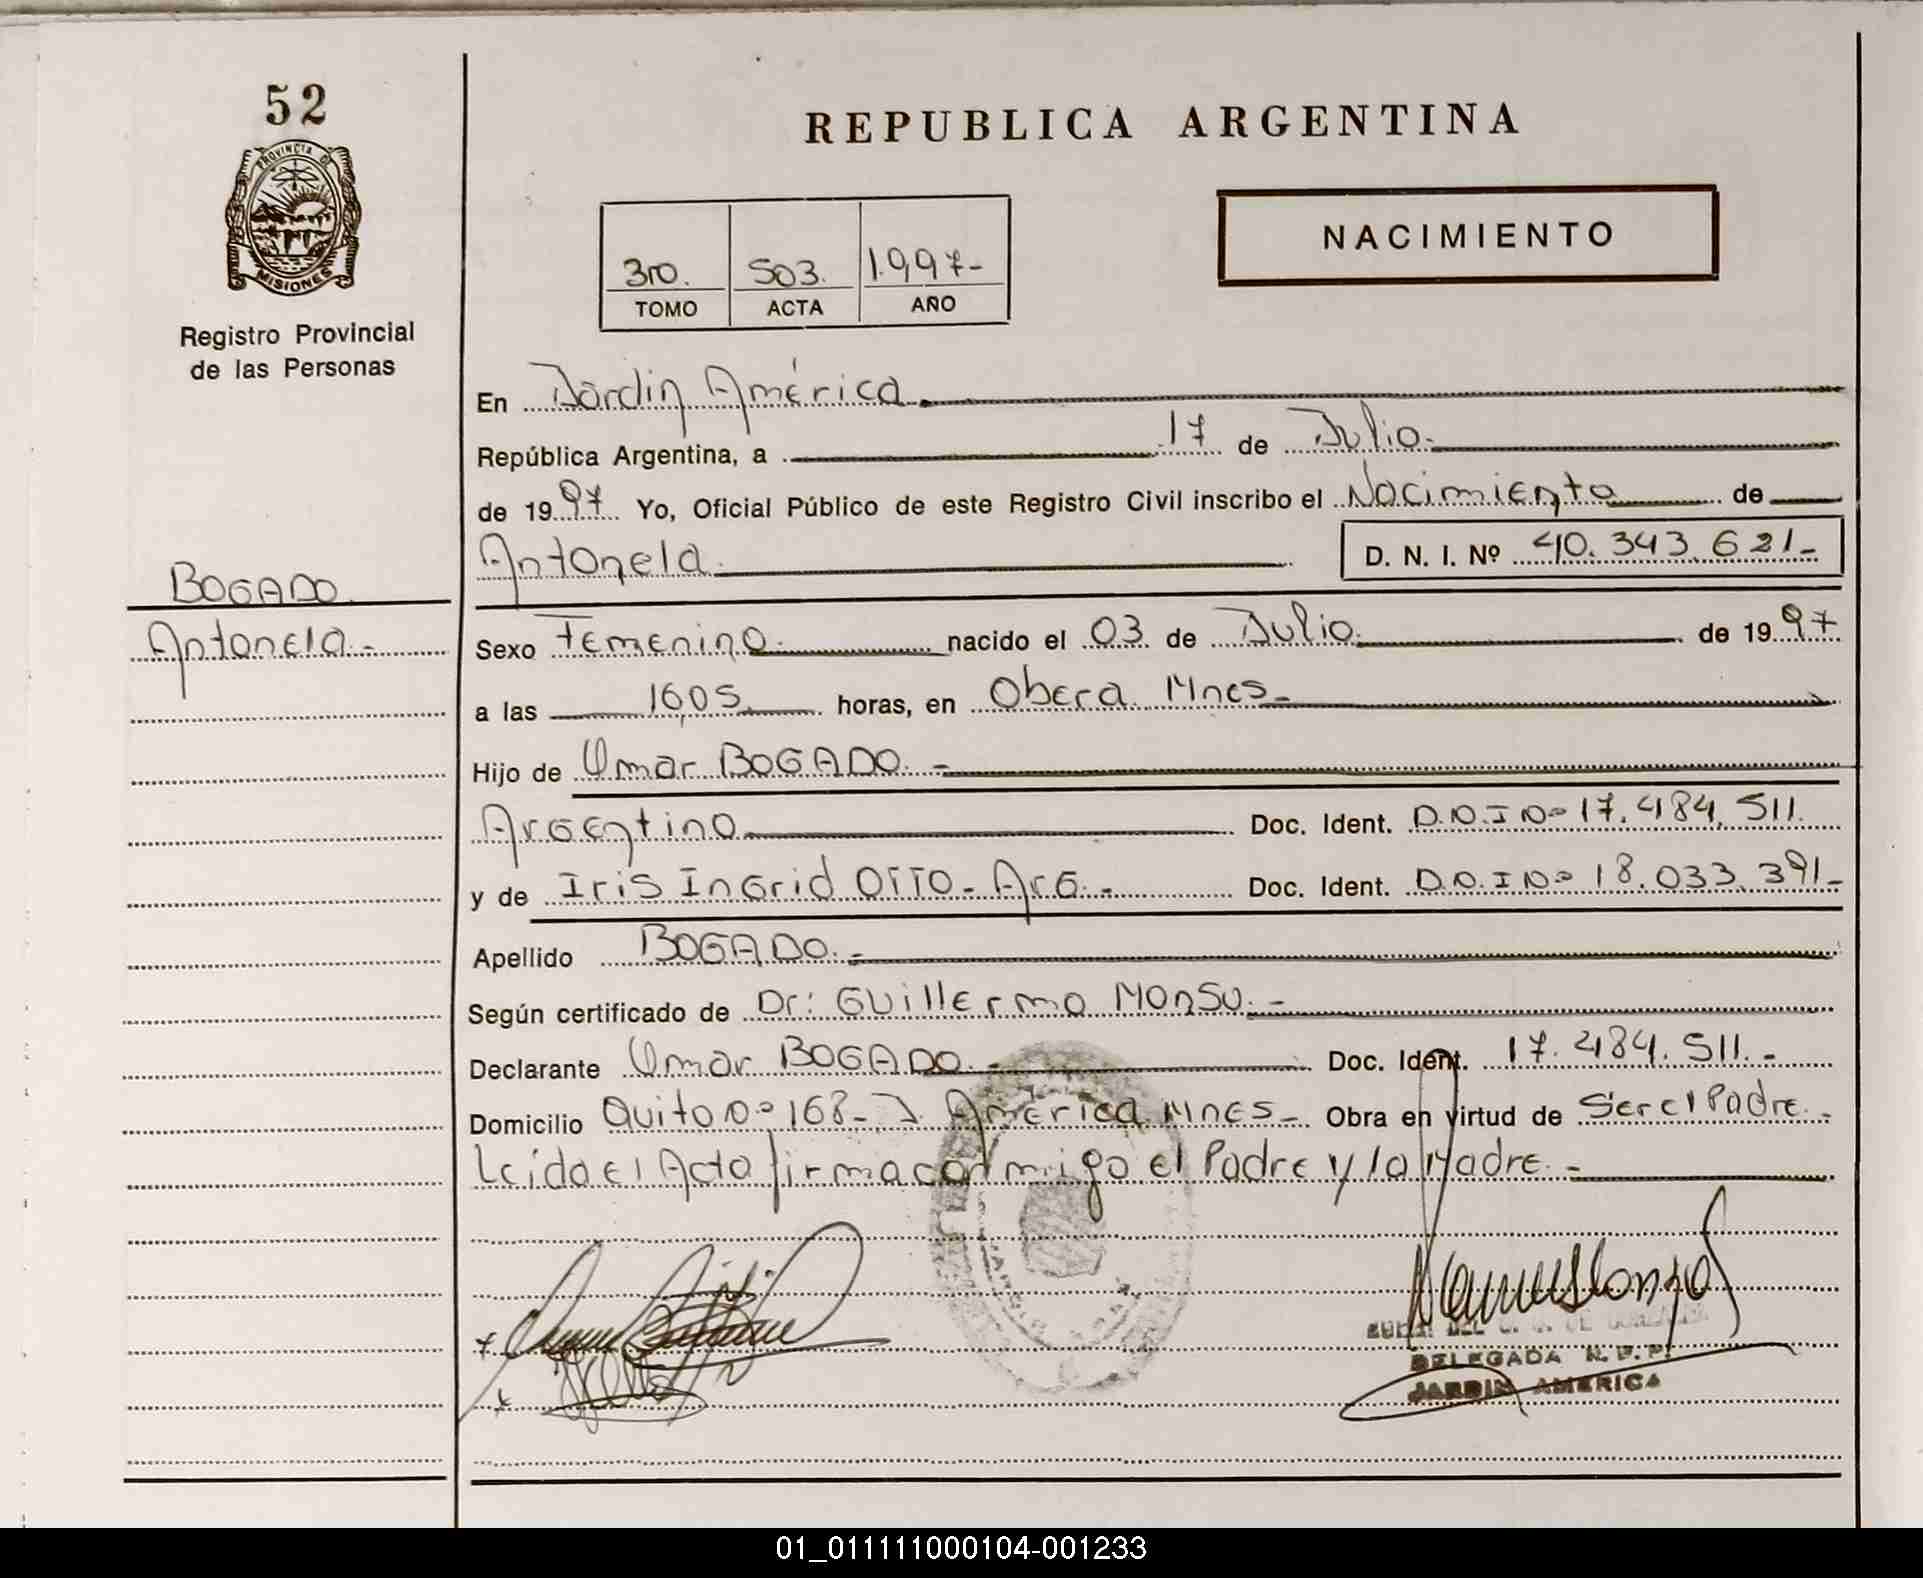 52
PROVINCIA DE
MISIONES
Registro Provincial
de las Personas
BOGADO
Antonela.-
REPUBLICA ARGENTINA
NACIMIENTO
3ro. 503. 1.997-
TOMO ACTA AÑO
En Jardin América.
República Argentina, a 17 de Julio.
de 1997 Yo, Oficial Público de este Registro Civil inscribo el Nacimiento de
Antonela. D. N. I. Nº 40.343.621-
Sexo Femenino. nacido el 03 de Julio. de 1997
a las 16,05 horas, en Obera Mnes-
Hijo de Omar BOGADO.-
Argentino Doc. Ident. D.N.I Nº 17.484.511.
y de Iris Ingrid OTTO- Arg.- Doc. Ident. D.N.I Nº 18.033.391-
Apellido BOGADO.-
Según certificado de Dr: Guillermo Monsu.-
Declarante Omar BOGADO.- Doc. Ident. 17.484.511.-
Domicilio Quito Nº 168- J. América Mnes- Obra en virtud de Ser el Padre.-
Leida el Acta firma conmigo el Padre y la Madre.-
DELEGADA R.P.P.
JARDIN AMERICA
01_011111000104-001233